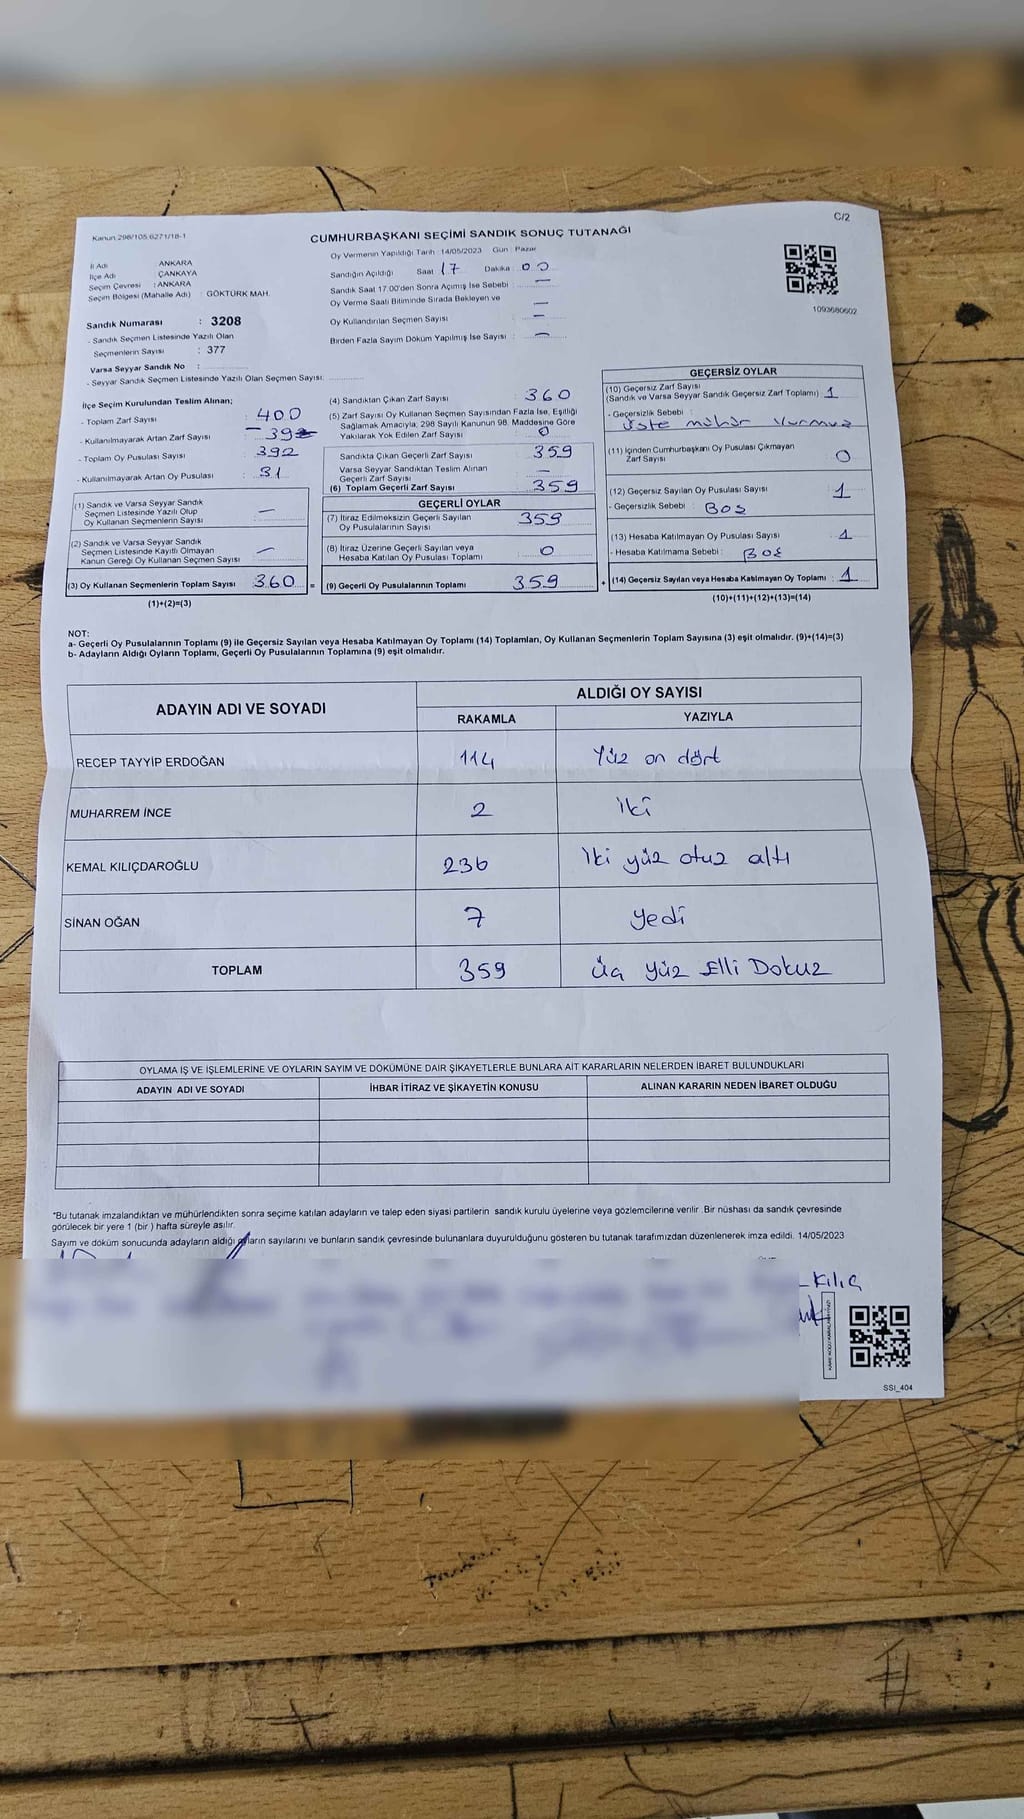 C/2
Kanun 298/105 6271/18-1
CUMHURBAŞKANI SEÇİMİ SANDIK SONUÇ TUTANAĞI
İl Adı : ANKARA
İlçe Adı : ÇANKAYA
Seçim Çevresi : ANKARA
Seçim Bölgesi (Mahalle Adı) : GÖKTÜRK MAH.
Sandık Numarası : 3208
- Sandık Seçmen Listesinde Yazılı Olan
Seçmenlerin Sayısı : 377
Varsa Seyyar Sandık No :
- Seyyar Sandık Seçmen Listesinde Yazılı Olan Seçmen Sayısı:
Oy Vermenin Yapıldığı Tarih : 14/05/2023 Gün : Pazar
Sandığın Açıldığı Saat 17 Dakika : 00
Sandık Saat 17.00'den Sonra Açımış İse Sebebi : —
Oy Verme Saati Bitiminde Sırada Bekleyen ve
Oy Kullandırılan Seçmen Sayısı : —
Birden Fazla Sayım Döküm Yapılmış İse Sayısı : —
1093680602
İlçe Seçim Kurulundan Teslim Alınan;
- Toplam Zarf Sayısı : 400
- Kullanılmayarak Artan Zarf Sayısı
- Toplam Oy Pusulası Sayısı : 392
- Kullanılmayarak Artan Oy Pusulası : 31
(1) Sandık ve Varsa Seyyar Sandık
Seçmen Listesinde Yazılı Olup
Oy Kullanan Seçmenlerin Sayısı —
(2) Sandık ve Varsa Seyyar Sandık
Seçmen Listesinde Kayıtlı Olmayan
Kanun Gereği Oy Kullanan Seçmen Sayısı —
(3) Oy Kullanan Seçmenlerin Toplam Sayısı 360 =
(1)+(2)=(3)
(4) Sandıktan Çıkan Zarf Sayısı : 360
(5) Zarf Sayısı Oy Kullanan Seçmen Sayısından Fazla İse, Eşitliği
Sağlamak Amacıyla; 298 Sayılı Kanunun 98. Maddesine Göre
Yakılarak Yok Edilen Zarf Sayısı : 0
Sandıkta Çıkan Geçerli Zarf Sayısı : 359
Varsa Seyyar Sandıktan Teslim Alınan
Geçerli Zarf Sayısı : —
(6) Toplam Geçerli Zarf Sayısı : 359
GEÇERLİ OYLAR
(7) İtiraz Edilmeksizin Geçerli Sayılan
Oy Pusulalarının Sayısı 359
(8) İtiraz Üzerine Geçerli Sayılan veya
Hesaba Katılan Oy Pusulası Toplamı 0
(9) Geçerli Oy Pusulalarının Toplamı 359 +
GEÇERSİZ OYLAR
(10) Geçersiz Zarf Sayısı
(Sandık ve Varsa Seyyar Sandık Geçersiz Zarf Toplamı) 1
- Geçersizlik Sebebi :
üste mühür
(11) İçinden Cumhurbaşkanı Oy Pusulası Çıkmayan
Zarf Sayısı 0
(12) Geçersiz Sayılan Oy Pusulası Sayısı 1
- Geçersizlik Sebebi : BOŞ
(13) Hesaba Katılmayan Oy Pusulası Sayısı 1
- Hesaba Katılmama Sebebi : BOŞ
(14) Geçersiz Sayılan veya Hesaba Katılmayan Oy Toplamı : 1
(10)+(11)+(12)+(13)=(14)
NOT:
a- Geçerli Oy Pusulalarının Toplamı (9) ile Geçersiz Sayılan veya Hesaba Katılmayan Oy Toplamı (14) Toplamları, Oy Kullanan Seçmenlerin Toplam Sayısına (3) eşit olmalıdır. (9)+(14)=(3)
b- Adayların Aldığı Oyların Toplamı, Geçerli Oy Pusulalarının Toplamına (9) eşit olmalıdır.
ADAYIN ADI VE SOYADI
ALDIĞI OY SAYISI
RAKAMLA YAZIYLA
RECEP TAYYİP ERDOĞAN 114 Yüz on dört
MUHARREM İNCE 2 İki
KEMAL KILIÇDAROĞLU 236 İki yüz otuz altı
SİNAN OĞAN 7 yedi
TOPLAM 359 Üç yüz Elli Dokuz
OYLAMA İŞ VE İŞLEMLERİNE VE OYLARIN SAYIM VE DÖKÜMÜNE DAİR ŞİKAYETLERLE BUNLARA AİT KARARLARIN NELERDEN İBARET BULUNDUKLARI
ADAYIN ADI VE SOYADI İHBAR İTİRAZ VE ŞİKAYETİN KONUSU ALINAN KARARIN NEDEN İBARET OLDUĞU
*Bu tutanak imzalandıktan ve mühürlendikten sonra seçime katılan adayların ve talep eden siyasi partilerin sandık kurulu üyelerine veya gözlemcilerine verilir. Bir nüshası da sandık çevresinde
görülecek bir yere 1 (bir ) hafta süreyle asılır.
Sayım ve döküm sonucunda adayların aldığı oyların sayılarını ve bunların sandık çevresinde bulunanlara duyurulduğunu gösteren bu tutanak tarafımızdan düzenlenerek imza edildi. 14/05/2023
Kılıç
SSI_404